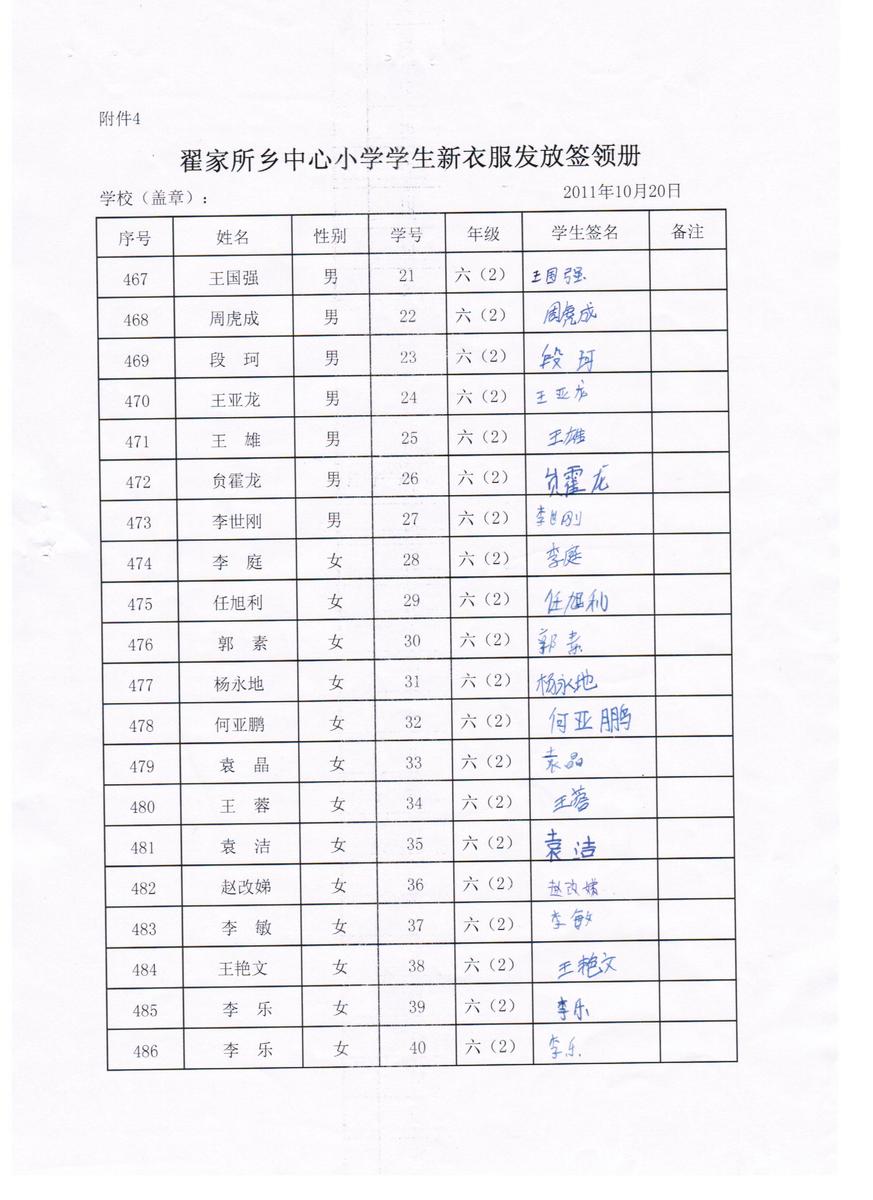 附件4
翟家所乡中心小学学生新衣服发放签领册
学校（盖章）： 2011年10月20日
序号 姓名 性别 学号 年级 学生签名 备注
467 王国强 男 21 六（2） 王国强
468 周虎成 男 22 六（2） 周虎成
469 段 珂 男 23 六（2） 段珂
470 王亚龙 男 24 六（2） 王亚龙
471 王 雄 男 25 六（2） 王雄
472 贠霍龙 男 26 六（2） 贠霍龙
473 李世刚 男 27 六（2） 李世刚
474 李 庭 女 28 六（2） 李庭
475 任旭利 女 29 六（2） 任旭利
476 郭 素 女 30 六（2） 郭素
477 杨永地 女 31 六（2） 杨永地
478 何亚鹏 女 32 六（2） 何亚鹏
479 袁 晶 女 33 六（2） 袁晶
480 王 蓉 女 34 六（2） 王蓉
481 袁 洁 女 35 六（2） 袁洁
482 赵改娣 女 36 六（2） 赵改娣
483 李 敏 女 37 六（2） 李敏
484 王艳文 女 38 六（2） 王艳文
485 李 乐 女 39 六（2） 李乐
486 李 乐 女 40 六（2） 李乐